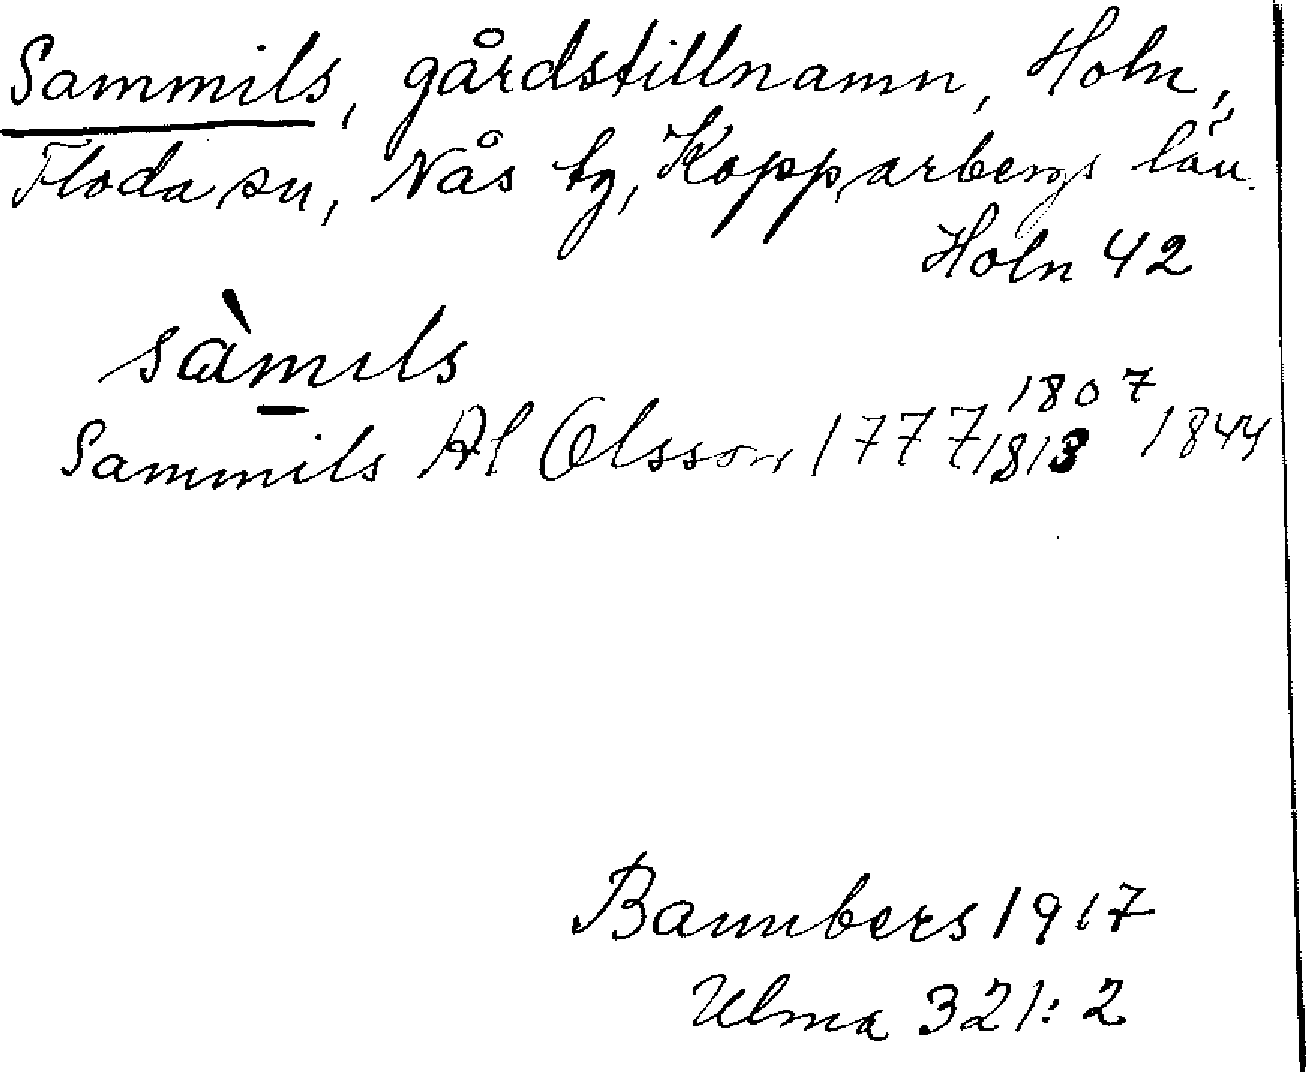 Sammils, gårdstillnamn, Holn,
Floda sn, Nås tg, Kopparbergs län.
Holn 42
sàmils
Sammils Al Olsson 1777 1807 1844
1813
Baunbers 1917
Ulma 321:2